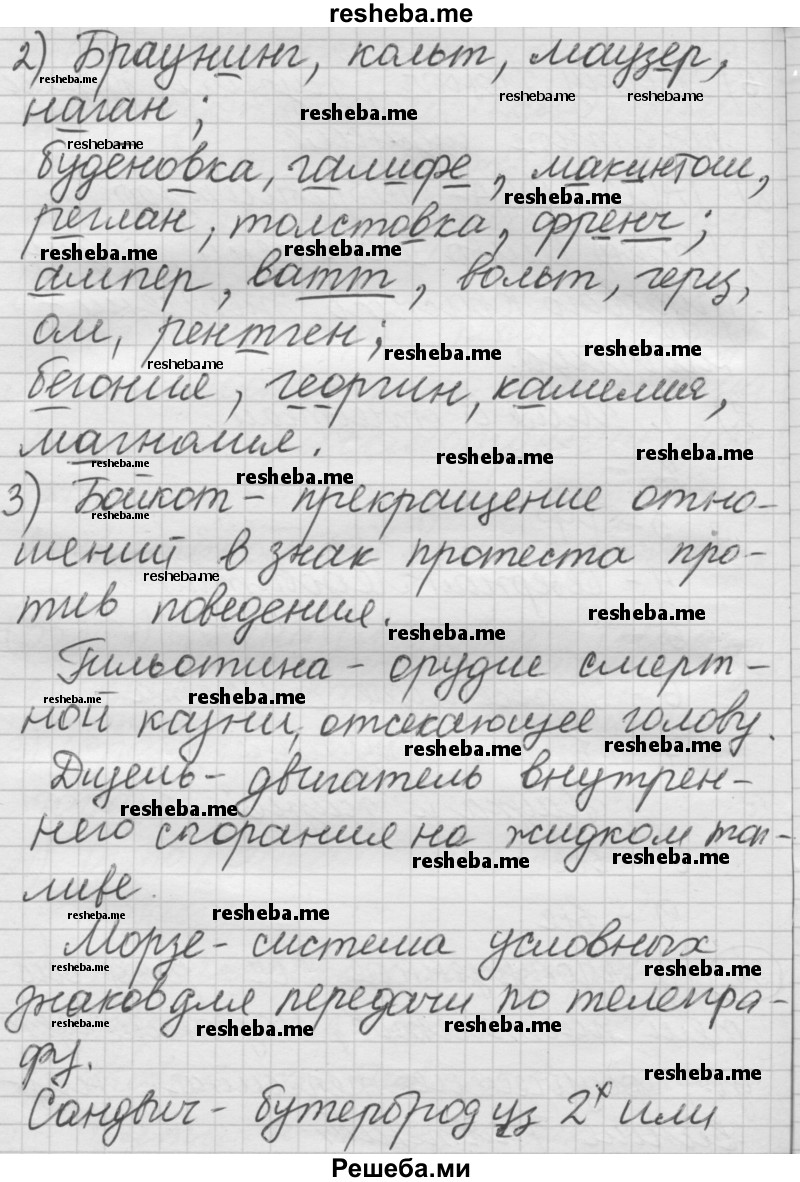 resheba.me
2) Браунинг, кольт, маузер,
resheba.me
resheba.me resheba.me
наган; resheba.me
resheba.me
буденовка, галифе, макинтош,
resheba.me
реглан, толстовка, френч;
resheba.me resheba.me
ампер, ватт, вольт, герц,
ом, рентген;
resheba.me resheba.me resheba.me
бегония, георгин, камелия,
магнолия.
resheba.me resheba.me
resheba.me resheba.me
3) Бойкот - прекращение отно-
resheba.me
шений в знак протеста про-
resheba.me
тив поведения. resheba.me
resheba.me
Гильотина - орудие смерт-
resheba.me resheba.me
ной казни, отсекающее голову.
resheba.me resheba.me
Дизель - двигатель внутрен-
resheba.me
него сгорания на жидком топ-
resheba.me resheba.me
ливе.
resheba.me resheba.me
Морзе - система условных
resheba.me resheba.me
знаков для передачи по телегра-
resheba.me resheba.me resheba.me
фу.
resheba.me
Сандвич - бутерброд из 2х или
Решеба.ми